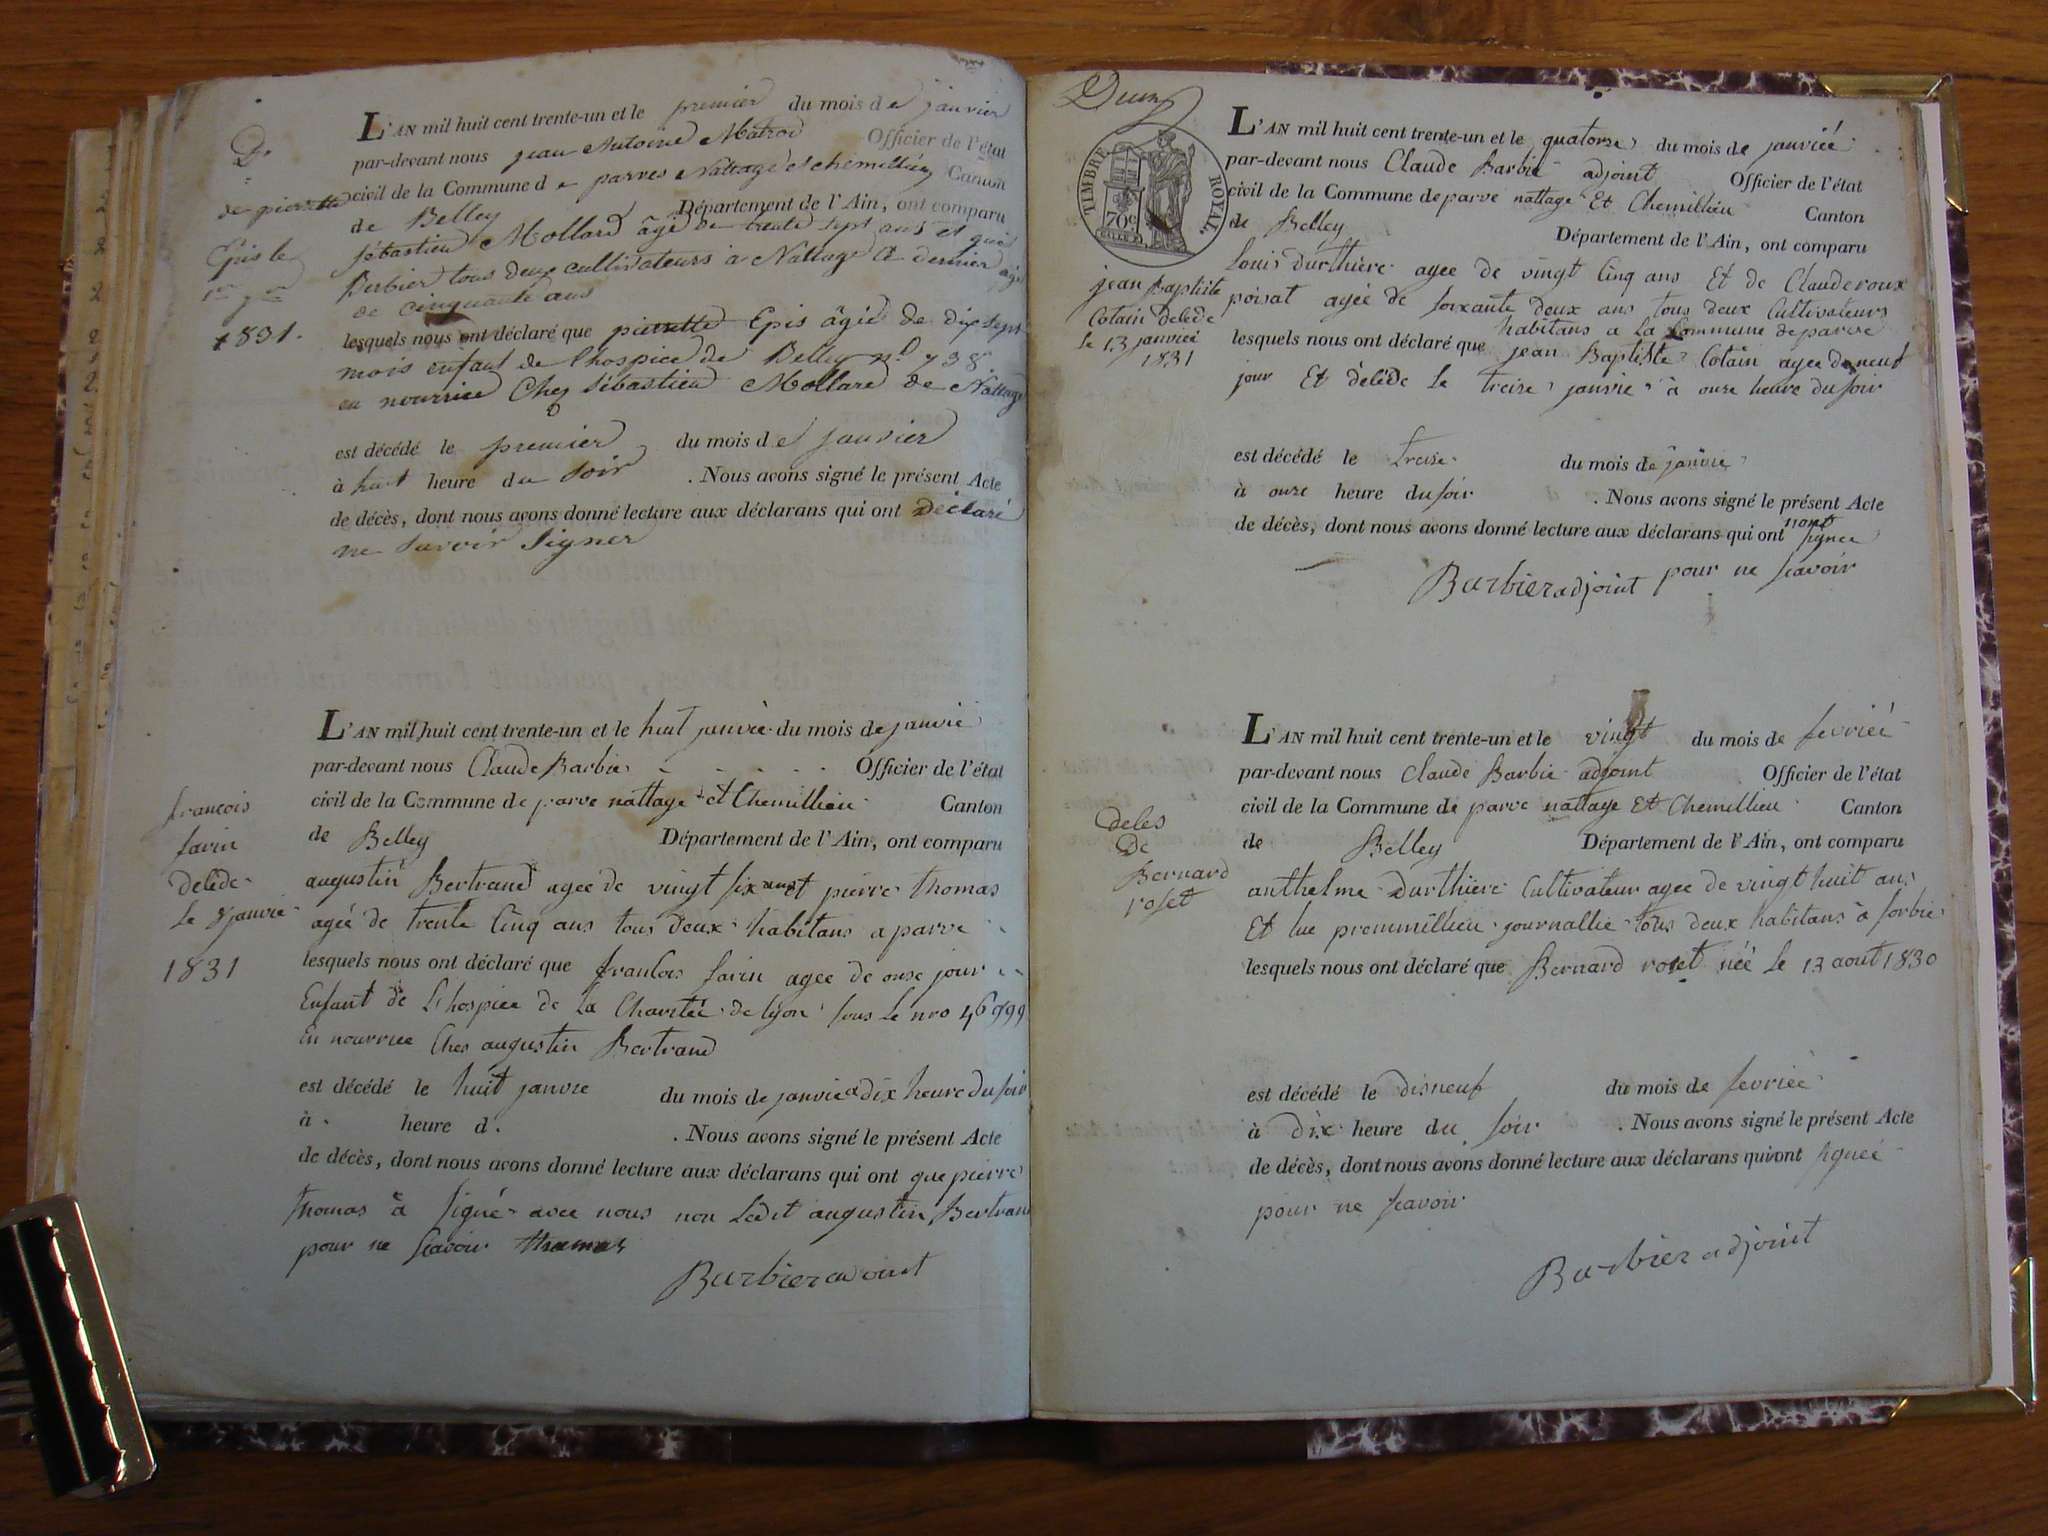 L'AN mil huit cent trente-un et le premier du mois de janvier
par-devant nous jean Antoine Officier de l'état
civil de la Commune de parves Nattage et chemillieu Canton
de Belley Département de l'Ain, ont comparu
sébastien Mollard âgé de trente sept ans et
Berbier tous deux cultivateurs a Nattage dernier agé
de cinquante ans
lesquels nous ont déclaré que pierrette Epis âgée de dix sept
mois enfant de l'hospice de Belley n.o 738
en nourrice Chez sébastien Mollard de Nattage
est décédé le premier du mois de janvier
à huit heure du soir . Nous avons signé le présent Acte
de décès, dont nous avons donné lecture aux déclarans qui ont déclaré
ne savoir signer
D.
de pierrette
Epis le
1er
1831.
L'AN mil huit cent trente-un et le huit janvie du mois de janvie
par-devant nous Claude Barbie Officier de l'état
civil de la Commune de parve nattage et Chemillieu Canton
de Belley Département de l'Ain, ont comparu
augustin Bertrand agee de vingt six ans et pierre thomas
agée de trente Cinq ans tous deux habitans a parve
lesquels nous ont déclaré que francois favin agee de onse jour
Enfant de L'hospice de La Charitée de lyon sous Le nro 46999
En nourrice Ches augustin Bertrand
est décédé le huit janvie du mois de janvie a dix heure du soir
à heure d . Nous avons signé le présent Acte
de décès, dont nous avons donné lecture aux déclarans qui ont que pierre
thomas à signé avec nous non Ledit augustin Bertrand
pour ne scavoir thomas
Barbier adjoint
francois
favin
deléde
le 8 janvie
1831
Deux
TIMBRE ROYAL
70c
L'AN mil huit cent trente-un et le quatorse du mois de janviéé
par-devant nous Claude Barbié adjoint Officier de l'état
civil de la Commune de parve nattage Et Chemillieu Canton
de Belley Département de l'Ain, ont comparu
Louis Durthiere agee de vingt Cinq ans Et de Clauderoux
poisat agéé de soixante deux ans tous deux Cultivateurs
habitans a La Commune de parve
lesquels nous ont déclaré que jean Baptiste Cotain agee de neuf
jour Et déléde Le treise janvie à onse heure du soir
est décédé le treise du mois de janvie
à onse heure du soir . Nous avons signé le présent Acte
de décès, dont nous avons donné lecture aux déclarans qui ont n'ont signee
pour ne scavoir
Barbier adjoint
jean Baptiste
Cotain deléde
le 13 janviéé
1831
L'AN mil huit cent trente-un et le vingt du mois de fevriéé
par-devant nous Claude Barbie adjoint Officier de l'état
civil de la Commune de parve nattage Et Chemillieu Canton
de Belley Département de l'Ain, ont comparu
anthelme Durthiere Cultivateur agee de vingt huit ans
Et luc premmillieu journallie tous deux habitans à sorbie
lesquels nous ont déclaré que Bernard roset néé Le 13 aout 1830
est décédé le disneuf du mois de fevriéé
à Dix heure du soir . Nous avons signé le présent Acte
de décès, dont nous avons donné lecture aux déclarans qui ont signéé
pour ne scavoir
Barbier adjoint
deles
De
Bernard
roset